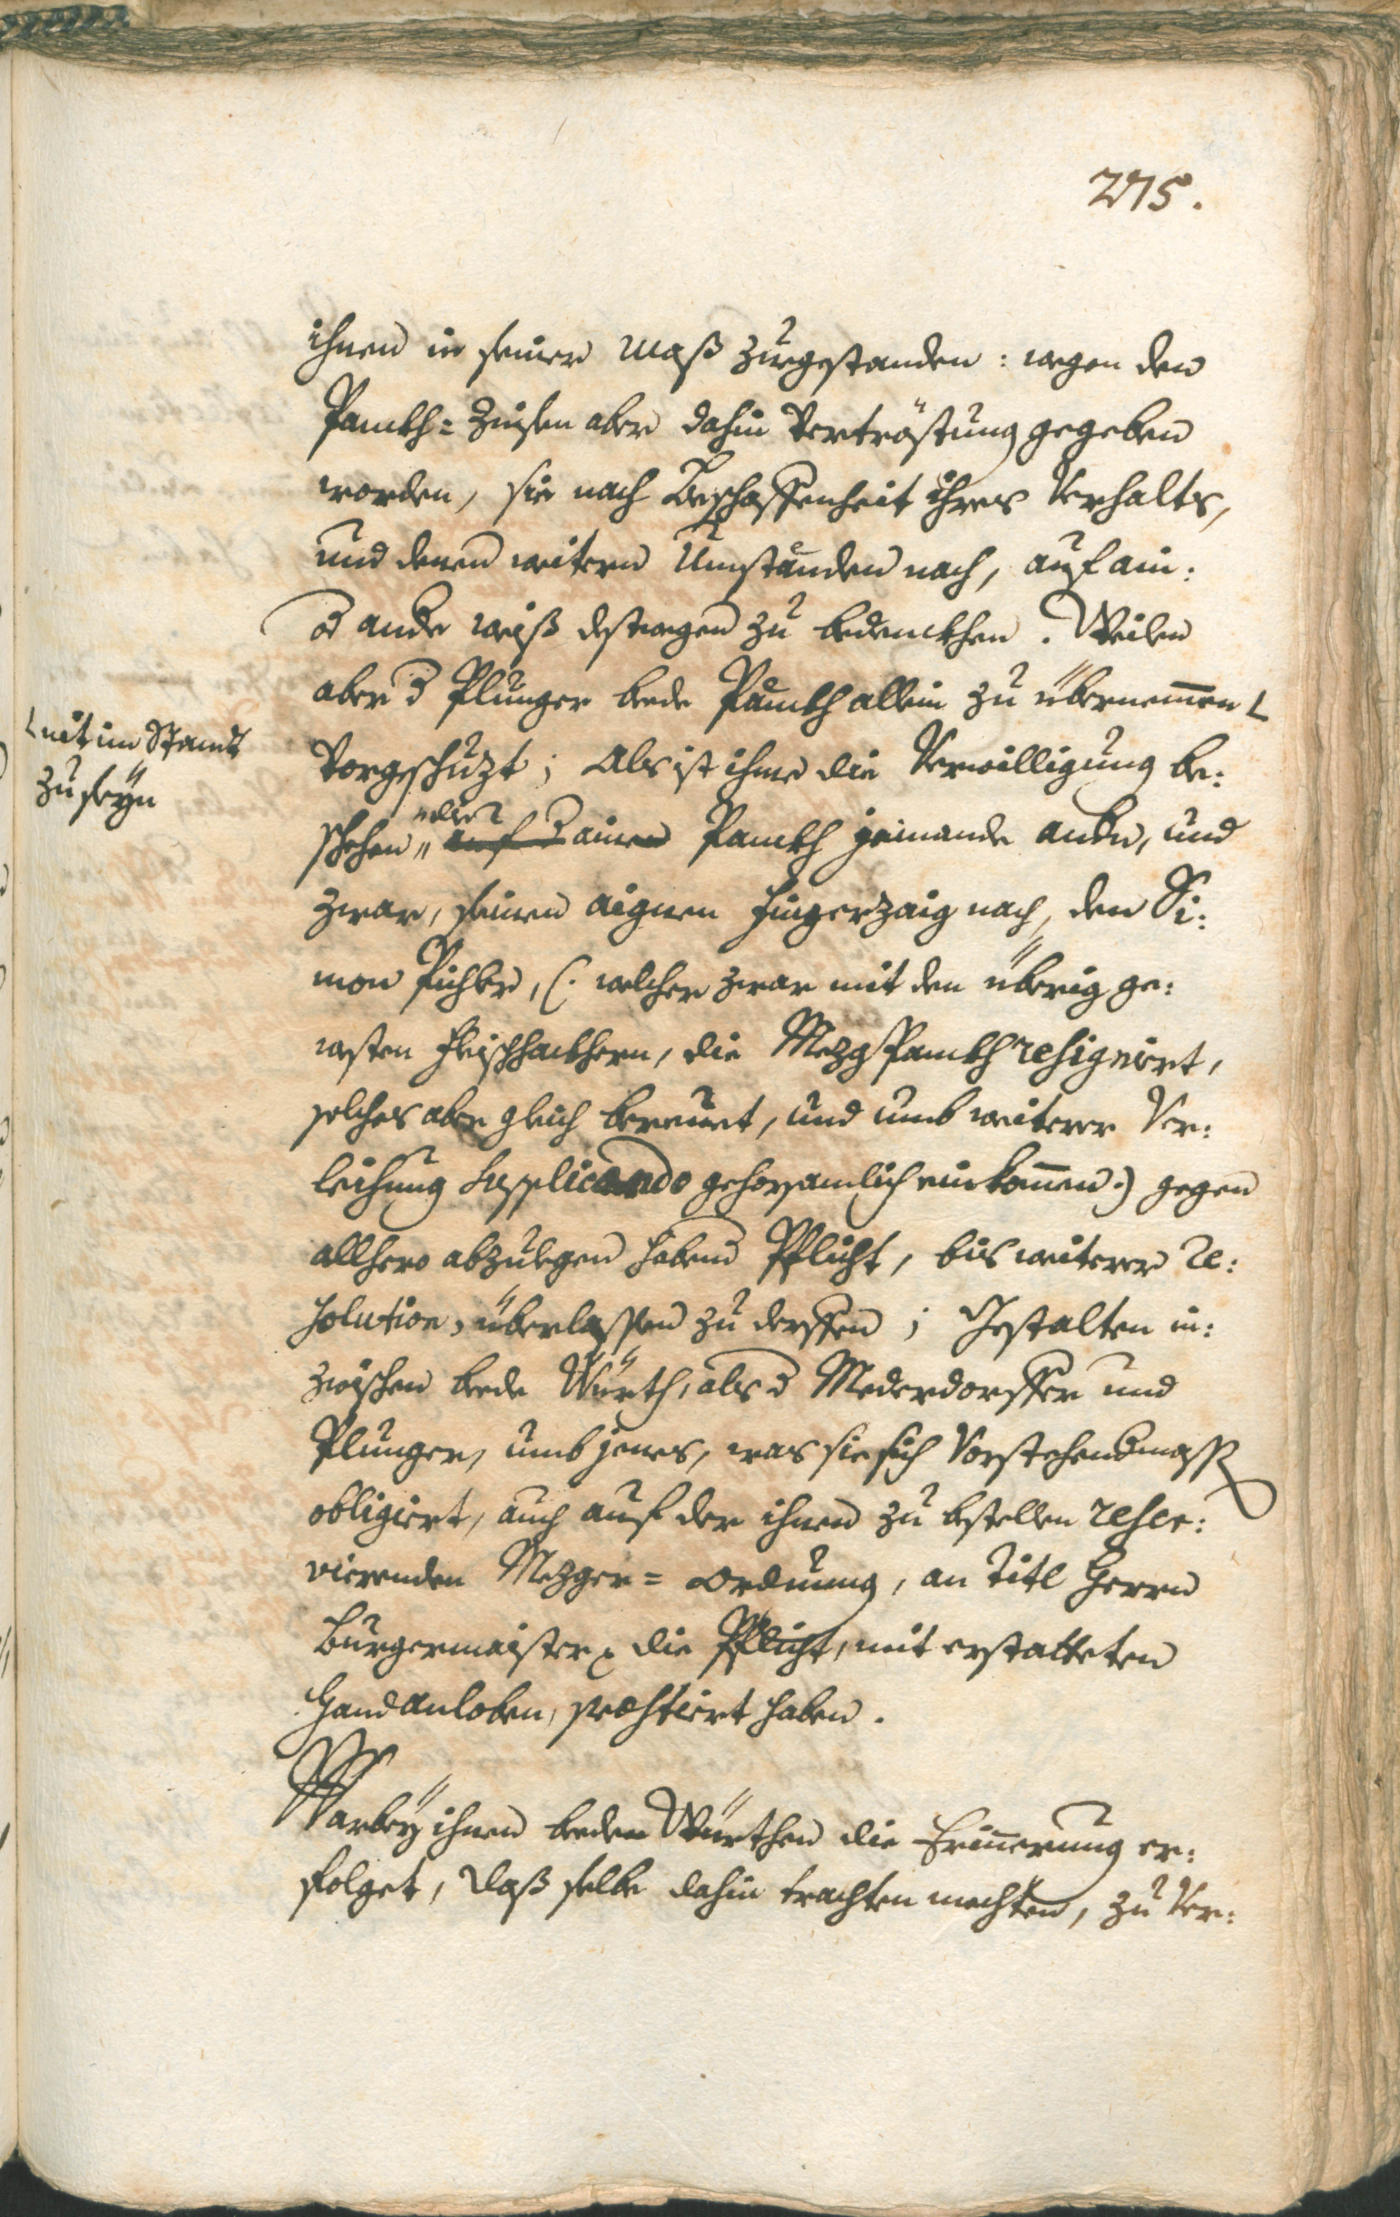 275.
ihnen in seiner Maß zuegestanden: wegen den
Panckh= Zinsen aber dahin Vertröstung gegeben
worden, sie nach Beschaffenheit ihres Verhalts,
und denen weitern Umständen nach, auf ain:
od ande weiß destwegen zu bedenckhen. Weilen
aber d Plunger beede Pänckh allein zu übernemen
nit im Standt
zu seyn
Vorgeschuzt; Als ist ihme die Verwilligung be:
schehen, auf d ainen Panckh jemande andn, und
zwar, seinen aignen Fingerzaig nach, den Si:
mon Pichler, (: welcher zwar mit den übrig ge:
westen Fleischhackhern, die Mezg Panckh resigniert,
solches aber gleich bereuet, und umb weiterer Ver:
leihung supplicando gehorsamlich einkomen:) gegen
allhero abzulegen habend Pflicht, bis weiterer Re:
solution, überlassen zu derffen; Gestalten in:
zwischen beede Würth, als d Mederdorffer und
Plunger, umb jenes, was sie sich Vorstehendmaß
obligiert, auch auf der ihnen zu bestellen reser:
vierenden Mezger= Ordnung, an Titl Herrn
Burgermaister die Pflicht, mit erstatteten
Handanloben, præstiert haben.
Warbey ihnen beeden Würthen die Erinerung er:
folget, daß selbe dahin trachten mechten, zu Ver: